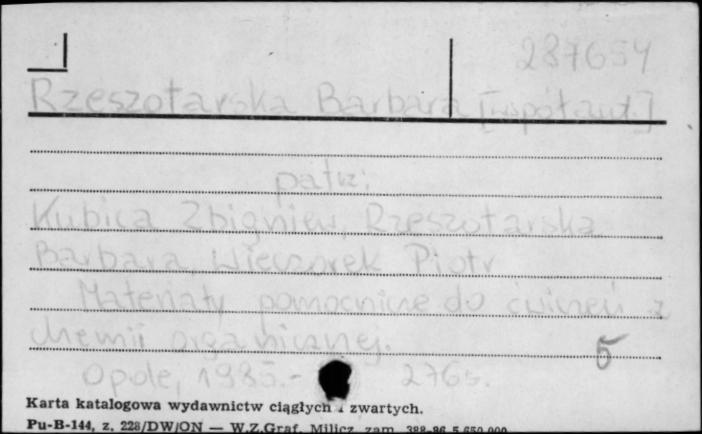 287654
Rzeszotarska Barbara [współaut.]
patrz:
Kubica Zbigniew, Rzeszotarska
Barbara, Wieczorek Piotr
Materiały pomocnicze do ćwiczeń z
chemii organicznej.
5
Opole, 1985.- 276s.
Karta katalogowa wydawnictw ciągłych i zwartych.
Pu-B-144, z. 228/DW/ON — W.Z.Graf. Milicz zam. 388-86 5.650.000